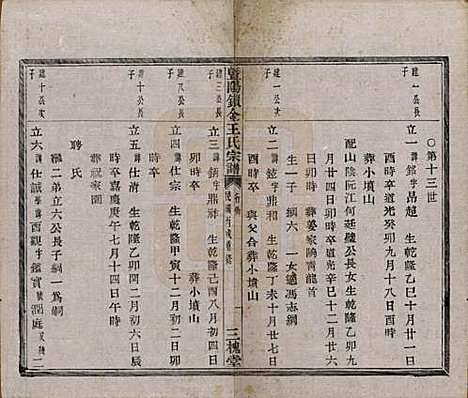 ○第十三世
建一公長子
立一諱銘字品超 生乾隆乙巳十月廿一日
酉時卒道光癸卯九月十八日酉時
葬小墳山
配山陰阮江何廷璧公長女生乾隆乙卯九
月廿四日卯時卒道光辛卯十二月廿六
日卯時 葬晏家隖青龍首
生一子 綱六 一女適馮志綱
建一公次子
立二諱鉉字鼎和 生乾隆丁未十月廿七日
酉時卒 與父合葬小墳山
暨陽鎖金王氏宗譜
三槐堂
建三公長子
立三諱鈵字鼎祥 生乾隆己酉八月初四日
卯時卒 葬小墳山
建八公長子
立四諱仕宗 生乾隆甲寅十二月初二日卯
時卒
建十公長子
立五諱仕濟 生乾隆乙卯二月初六日辰
時卒嘉慶庚午七月十四日午時
葬祝家園
聘氏
繼二弟立六公長子綱一為嗣
建十公次子
立六諱仕誠字西觀字鑑寶 潤庭